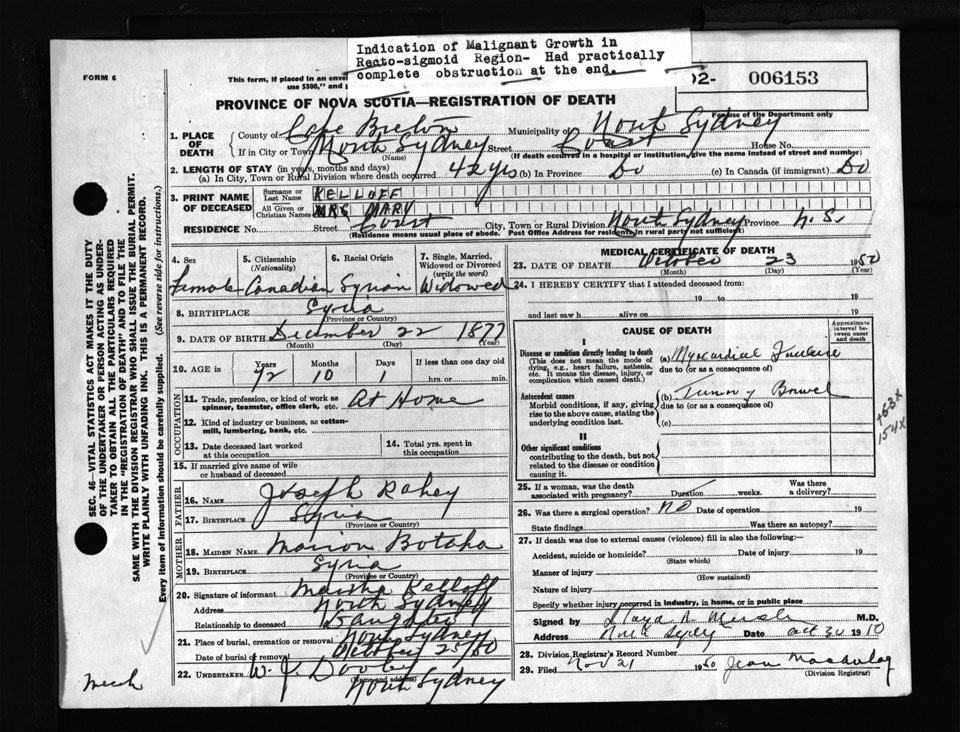 Indication of Malignant Growth in
Recto-sigmoid Region- Had practically
complete obstruction at the end.
FORM 6
This form, if placed in an envel
use $300," and p
02- 006153
For use of the Department only
PROVINCE OF NOVA SCOTIA—REGISTRATION OF DEATH
1. PLACE OF DEATH
County of Cape Breton Municipality of North Sydney
If in City or Town North Sydney Street Court House No.
(Name) (If death occurred in a hospital or institution, give the name instead of street and number)
2. LENGTH OF STAY (in years, months and days)
(a) In City, Town or Rural Division where death occurred 42 yrs (b) In Province Do (c) In Canada (if immigrant) Do
3. PRINT NAME OF DECEASED
Surname or Last Name KELLOFF
All Given or Christian Names MRS MARY
RESIDENCE No. Street Court City, Town or Rural Division North Sydney Province N.S.
(Residence means usual place of abode. Post Office Address for residents in rural parts not sufficient)
4. Sex Female
5. Citizenship (Nationality) Canadian
6. Racial Origin Syrian
7. Single, Married, Widowed or Divorced (write the word) Widowed
8. BIRTHPLACE Syria
(Province or Country)
9. DATE OF BIRTH December 22 1877
(Month) (Day) (Year)
10. AGE in Years 72 Months 10 Days 1 If less than one day old hrs. or min.
OCCUPATION
11. Trade, profession, or kind of work as spinner, teamster, office clerk, etc. At Home
12. Kind of industry or business, as cotton-mill, lumbering, bank, etc.
13. Date deceased last worked at this occupation
14. Total yrs. spent in this occupation
15. If married give name of wife or husband of deceased
FATHER
16. NAME Joseph Rahey
17. BIRTHPLACE Syria
(Province or Country)
MOTHER
18. MAIDEN NAME Marion Botaha
19. BIRTHPLACE Syria
(Province or Country)
20. Signature of informant Martha Kelloff
Address North Sydney
Relationship to deceased Daughter
21. Place of burial, cremation or removal North Sydney
Date of burial or removal October 25/50
22. UNDERTAKER W. J. Dooley
(Name and address)
North Sydney
MEDICAL CERTIFICATE OF DEATH
23. DATE OF DEATH October 23 1950
(Month) (Day) (Year)
24. I HEREBY CERTIFY that I attended deceased from:
19 to 19
and last saw h alive on 19
CAUSE OF DEATH
Approximate interval between onset and death
I
Disease or condition directly leading to death (a) Myocardial Failure
(This does not mean the mode of dying, e.g., heart failure, asthenia, etc. It means the disease, injury, or complication which caused death.)
due to (or as a consequence of)
Antecedent causes (b) Tumor of Bowel
Morbid conditions, if any, giving rise to the above cause, stating the underlying condition last.
due to (or as a consequence of)
(c)
154X
II
Other significant conditions
contributing to the death, but not related to the disease or condition causing it.
25. If a woman, was the death associated with pregnancy? Duration weeks. Was there a delivery?
26. Was there a surgical operation? No Date of operation 19
State findings Was there an autopsy?
27. If death was due to external causes (violence) fill in also the following:—
Accident, suicide or homicide? Date of injury 19
(State which)
Manner of injury
(How sustained)
Nature of injury
Specify whether injury occurred in industry, in home, or in public place
Signed by Lloyd M.D.
Address Date Oct 30 19
28. Division Registrar's Record Number
29. Filed Nov 21 1950 Jean
(Division Registrar)
SEC. 46—VITAL STATISTICS ACT MAKES IT THE DUTY
OF THE UNDERTAKER OR PERSON ACTING AS UNDER-
TAKER TO OBTAIN ALL THE PARTICULARS REQUIRED
IN THE "REGISTRATION OF DEATH" AND TO FILE THE
SAME WITH THE DIVISION REGISTRAR WHO SHALL ISSUE THE BURIAL PERMIT.
WRITE PLAINLY WITH UNFADING INK. THIS IS A PERMANENT RECORD.
Every item of information should be carefully supplied. (See reverse side for instructions.)